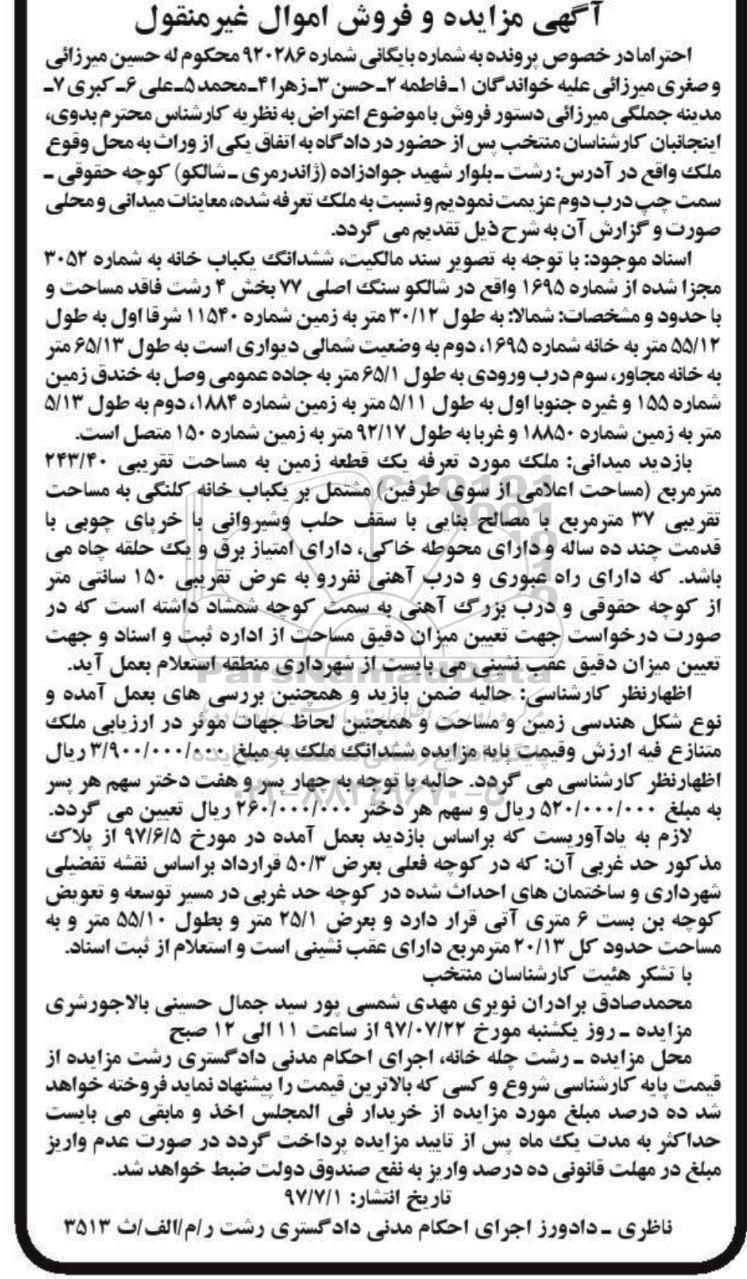 آگهی مزایده و فروش اموال غیرمنقول
احتراما در خصوص پرونده به شماره بایگانی شماره ۹۲۰۲۸۶ محکوم له حسین میرزائی
و صغری میرزائی علیه خواندگان ۱ـ فاطمه ۲ـ حسن ۳ـ زهرا ۴ـ محمد ۵ـ علی ۶ـ کبری ۷ـ
مدینه جملگی میرزائی دستور فروش با موضوع اعتراض به نظریه کارشناس محترم بدوی،
اینجانبان کارشناسان منتخب پس از حضور در دادگاه به اتفاق یکی از وراث به محل وقوع
ملک واقع در آدرس: رشت ـ بلوار شهید جوادزاده (ژاندرمری ـ شالکو) کوچه حقوقی ـ
سمت چپ درب دوم عزیمت نمودیم و نسبت به ملک تعرفه شده، معاینات میدانی و محلی
صورت و گزارش آن به شرح ذیل تقدیم می گردد.
اسناد موجود: با توجه به تصویر سند مالکیت، ششدانگ یکباب خانه به شماره ۳۰۵۲
مجزا شده از شماره ۱۶۹۵ واقع در شالکو سنگ اصلی ۷۷ بخش ۴ رشت فاقد مساحت و
با حدود و مشخصات: شمالا: به طول ۳۰/۱۲ متر به زمین شماره ۱۱۵۴۰ شرقا اول به طول
۵۵/۱۲ متر به خانه شماره ۱۶۹۵، دوم به وضعیت شمالی دیواری است به طول ۶۵/۱۳ متر
به خانه مجاور، سوم درب ورودی به طول ۶۵/۱ متر به جاده عمومی وصل به خندق زمین
شماره ۱۵۵ و غیره جنوبا اول به طول ۵/۱۱ متر به زمین شماره ۱۸۸۴، دوم به طول ۵/۱۳
متر به زمین شماره ۱۸۸۵۰ و غربا به طول ۹۲/۱۷ متر به زمین شماره ۱۵۰ متصل است.
بازدید میدانی: ملک مورد تعرفه یک قطعه زمین به مساحت تقریبی ۲۴۳/۴۰
مترمربع (مساحت اعلامی از سوی طرفین) مشتمل بر یکباب خانه کلنگی به مساحت
تقریبی ۳۷ مترمربع با مصالح بنایی با سقف حلب وشیروانی با خرپای چوبی با
قدمت چند ده ساله و دارای محوطه خاکی، دارای امتیاز برق و یک حلقه چاه می
باشد. که دارای راه عبوری و درب آهنی نفررو به عرض تقریبی ۱۵۰ سانتی متر
از کوچه حقوقی و درب بزرگ آهنی به سمت کوچه شمشاد داشته است که در
صورت درخواست جهت تعیین میزان دقیق مساحت از اداره ثبت و اسناد و جهت
تعیین میزان دقیق عقب نشینی می بایست از شهرداری منطقه استعلام بعمل آید.
ParsNamadData
اظهارنظر کارشناسی: حالیه ضمن بازید و همچنین بررسی های بعمل آمده و
نوع شکل هندسی زمین و مساحت و همچنین لحاظ جهات موثر در ارزیابی ملک
متنازع فیه ارزش وقیمت پایه مزایده ششدانگ ملک به مبلغ ۳/۹۰۰/۰۰۰/۰۰۰ ریال
اظهارنظر کارشناسی می گردد. حالیه با توجه به چهار پسر و هفت دختر سهم هر پسر
به مبلغ ۵۲۰/۰۰۰/۰۰۰ ریال و سهم هر دختر ۲۶۰/۰۰۰/۰۰۰ ریال تعیین می گردد.
لازم به یادآوریست که براساس بازدید بعمل آمده در مورخ ۹۷/۶/۵ از پلاک
مذکور حد غربی آن: که در کوچه فعلی بعرض ۵۰/۳ قرارداد براساس نقشه تفضیلی
شهرداری و ساختمان های احداث شده در کوچه حد غربی در مسیر توسعه و تعویض
کوچه بن بست ۶ متری آتی قرار دارد و بعرض ۲۵/۱ متر و بطول ۵۵/۱۰ متر و به
مساحت حدود کل ۲۰/۱۳ مترمربع دارای عقب نشینی است و استعلام از ثبت اسناد.
با تشکر هئیت کارشناسان منتخب
محمدصادق برادران نویری مهدی شمسی پور سید جمال حسینی بالاجورشری
مزایده ـ روز یکشنبه مورخ ۹۷/۰۷/۲۲ از ساعت ۱۱ الی ۱۲ صبح
محل مزایده ـ رشت چله خانه، اجرای احکام مدنی دادگستری رشت مزایده از
قیمت پایه کارشناسی شروع و کسی که بالاترین قیمت را پیشنهاد نماید فروخته خواهد
شد ده درصد مبلغ مورد مزایده از خریدار فی المجلس اخذ و مابقی می بایست
حداکثر به مدت یک ماه پس از تایید مزایده پرداخت گردد در صورت عدم واریز
مبلغ در مهلت قانونی ده درصد واریز به نفع صندوق دولت ضبط خواهد شد.
تاریخ انتشار: ۹۷/۷/۱
ناظری ـ دادورز اجرای احکام مدنی دادگستری رشت ر/م/الف/ث ۳۵۱۳